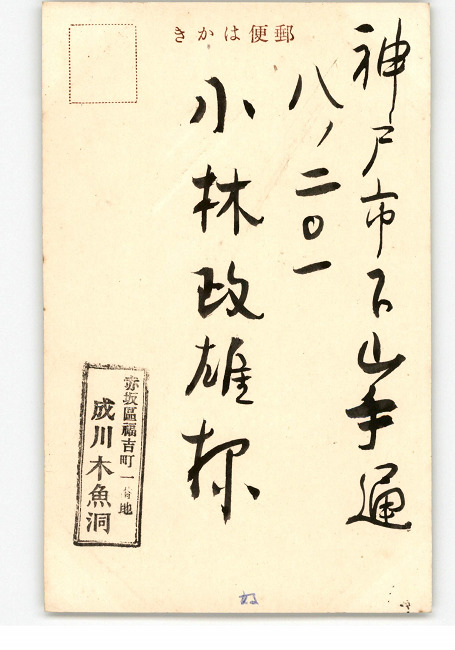 郵便はかき
神戸市下山手通
八ノ二〇一
小林政雄様
赤坂區福吉町一番地
成川木魚洞